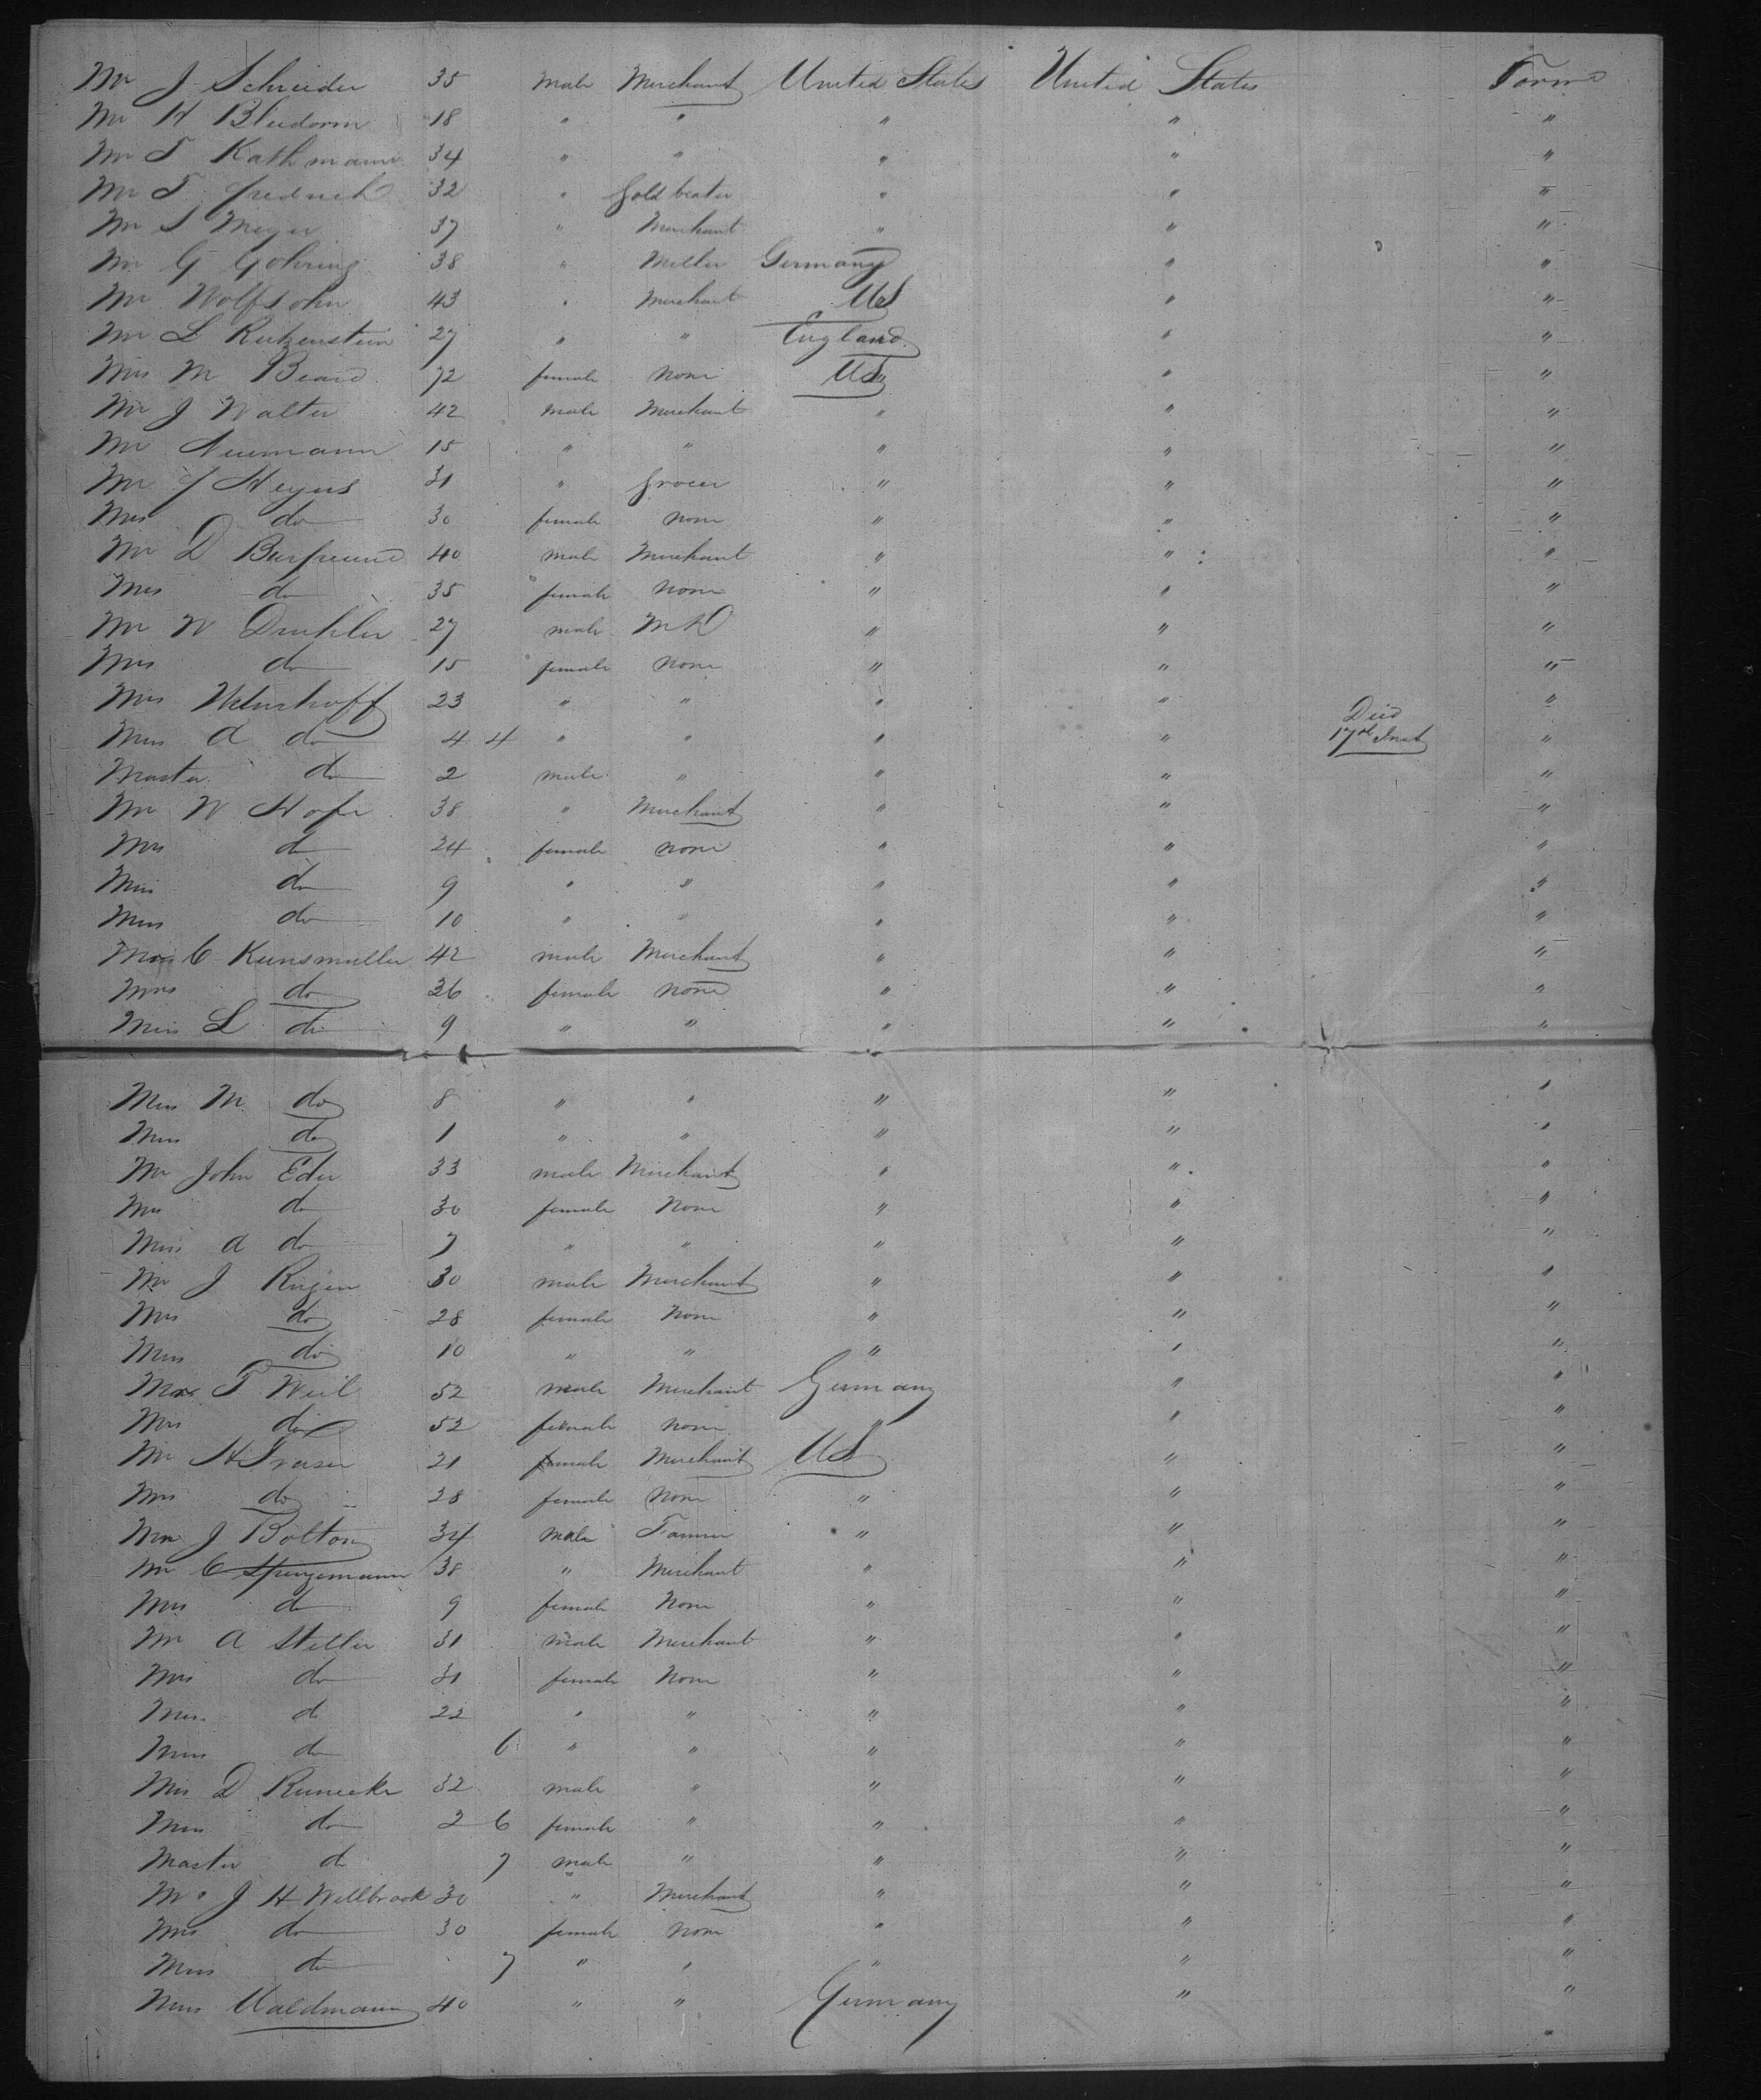 Mr J Schrieder 35 male Merchant United States United States Forwd
Mr H Bliedorm 18 " " " " "
Mr T Kathmann 34 " " " " "
Mr T fredrick 32 " Gold beater " " "
Mr S Meyer 37 " Merchant " " "
Mr G Gohring 38 " Miller Germany " "
Mr Wolfsohn 43 " Merchant US " "
Mr L Rutzenstein 27 " " England " "
Mrs M Beard 72 female none US " "
Mr J Walter 42 male Merchant " " "
Mr Neumann 15 " " " " "
Mr J Heyns 31 " Grocer " " "
Mrs do 30 female none " " "
Mr D Burfreund 40 male Merchant " " "
Mrs do 35 female none " " "
Mr W 27 male MD " " "
Mrs do 15 female none " " "
Mrs 23 " " " " "
Miss A do 4 4 " " " " Died 17th Inst "
Master do 2 male " " " "
Mr W Hofe 38 " Merchant " " "
Mrs do 24 female none " " "
Miss do 9 " " " " "
Miss do 10 " " " " "
Mr C Kunsmuller 42 male Merchant " " "
Mrs do 36 female none " " "
Miss L do 9 " " " " "
Miss M do 8 " " " " "
Miss do 1 " " " " "
Mr John Eder 33 male Merchant " " "
Mrs do 30 female none " " "
Miss A do 7 " " " " "
Mr J Rugen 30 male Merchant " " "
Mrs do 28 female none " " "
Miss do 10 " " " " "
Mr T Weil 52 male Merchant Germany " "
Mrs do 52 female none " " "
Mr H Fraser 21 male Merchant US " "
Mrs do 28 female none " " "
Mr J Bolton 34 male Farmer " " "
Mr C 38 " Merchant " " "
Mrs do 9 female none " " "
Mr A Steller 31 male Merchant " " "
Mrs do 31 female none " " "
Miss do 22 " " " " "
Miss do 6 " " " " "
Mrs D Runecke 32 male " " " "
Miss do 2 6 female " " " "
Master do 7 male " " " "
Mr J H Wellbrook 30 " Merchant " " "
Mrs do 30 female none " " "
Miss do 7 " " " " "
Miss Waldmann 40 " " Germany " "